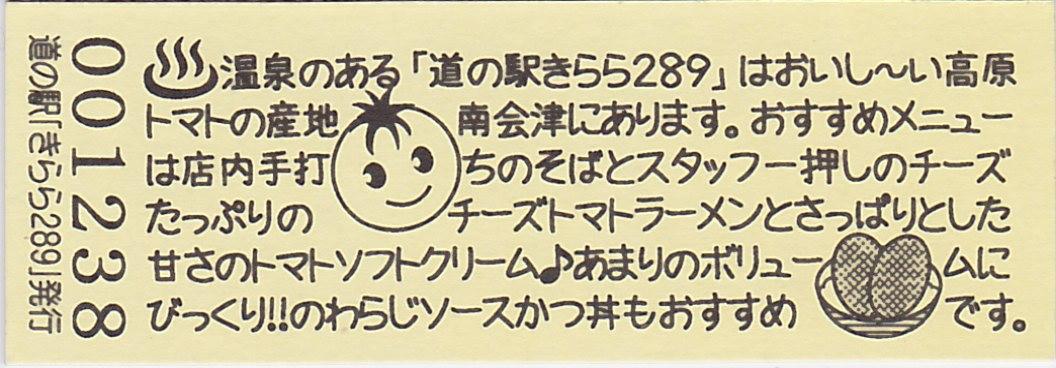 ♨温泉のある「道の駅きらら289」はおいし〜い高原
トマトの産地南会津にあります。おすすめメニュー
は店内手打ちのそばとスタッフ一押しのチーズ
たっぷりのチーズトマトラーメンとさっぱりとした
甘さのトマトソフトクリーム♪あまりのボリュームに
びっくり!!のわらじソースかつ丼もおすすめです。
001238
道の駅「きらら289」発行